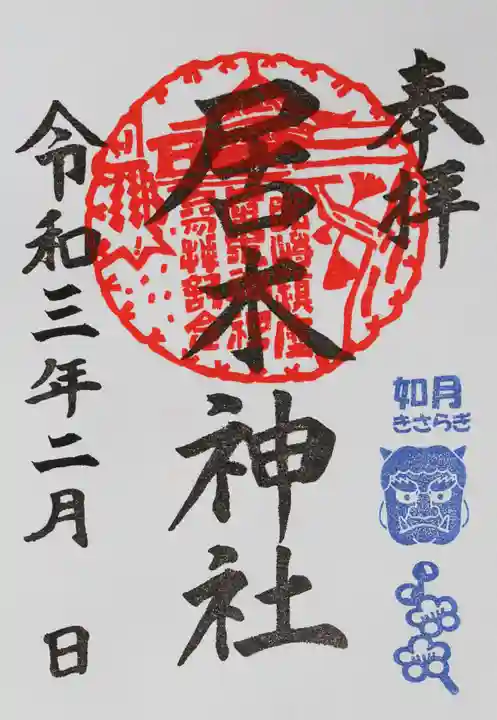 奉拝
如月
きさらぎ
居木神社
令和三年二月 日